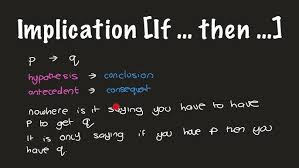 Implication [If ... then ...]
p → q
hypothesis → conclusion
antecedent → consequent
nowhere is it saying you have to have
p to get q
It is only saying if you have p then you
have q